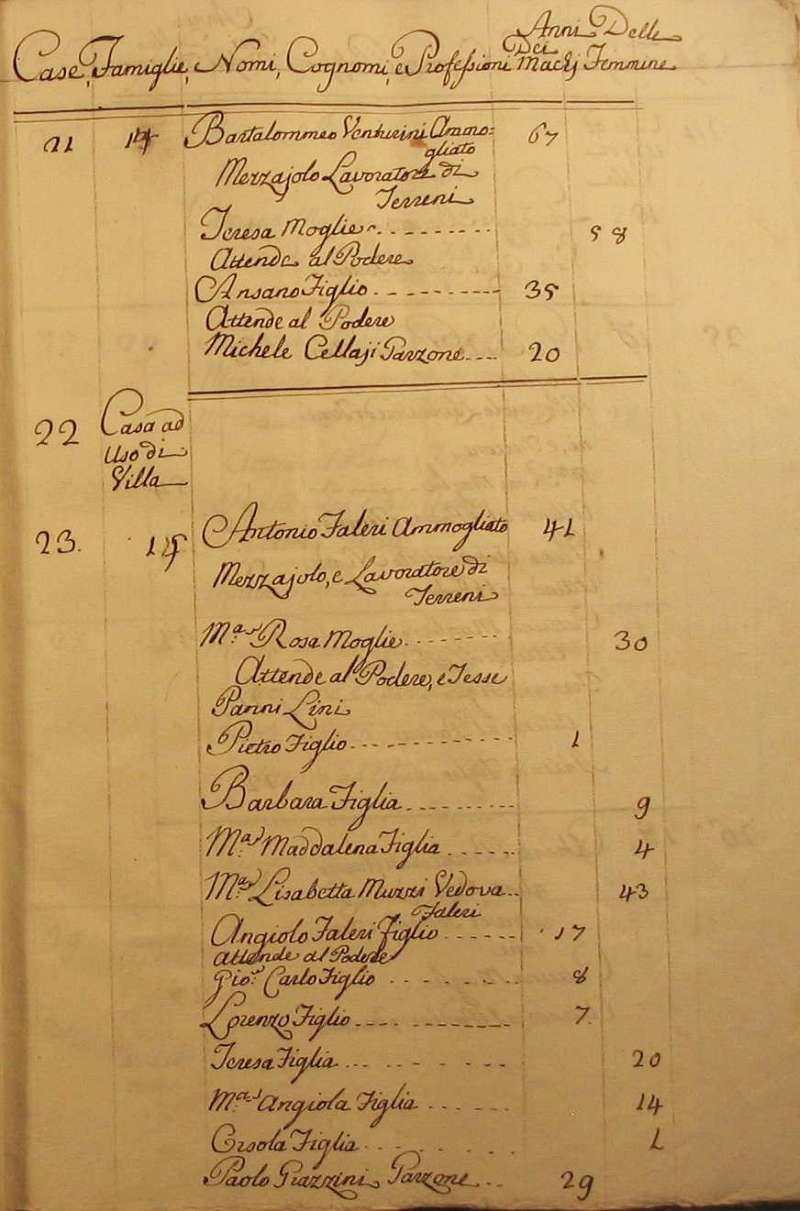 Anni Delle
Case, Famiglie, Nomi, Cognomi, e Professioni Dei Maschj Femmine
21 14 Bartolommeo Venturini Ammo= 67
gliato
Mezzajolo Lavoratore di
Terreni
Teresa Moglie 58
Attende al Podere
Ansano Figlio 35
Attende al Podere
Michele Cellaji Garzone 20
22 Casa ad
Uso di
Villa
23. 15 Antonio Faleri Ammogliato 41
Mezzajolo, e Lavoratore di
Terreni
M.ª Rosa Moglie 30
Attende al Podere, e Tesse
Panni Lini
Pietro Figlio 1
Barbara Figlia 9
M.ª Maddalena Figlia 4
M.ª Lisabetta Muzzi Vedova 43
Faleri
Angiolo Faleri Figlio 17
Attende al Podere
Gio. Carlo Figlio 8
Lorenzo Figlio 7.
Teresa Figlia 20
M.ª Angiola Figlia 14
Orsola Figlia 1
Paolo Grazzini Garzone 29